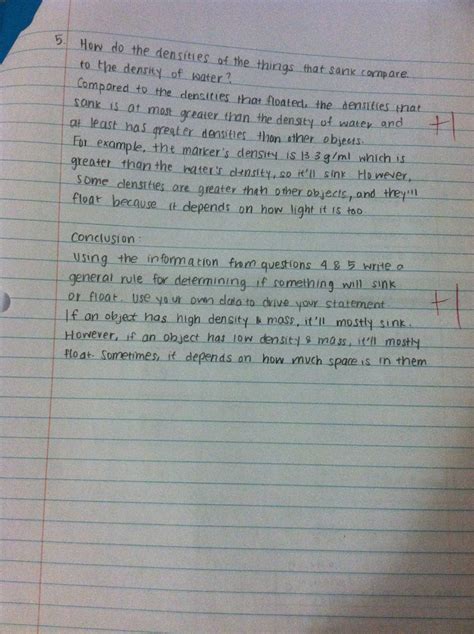 5. How do the densities of the things that sank compare
to the density of water?
Compared to the densities that floated, the densities that
sank is at most greater than the density of water and
at least has greater densities than other objects.
For example, the marker's density is 13.3 g/ml which is
greater than the water's density, so it'll sink. However,
some densities are greater than other objects, and they'll
float because it depends on how light it is too.
+1
Conclusion:
Using the information from questions 4 & 5 write a
general rule for determining if something will sink
or float. Use your own data to drive your statement.
If an object has high density & mass, it'll mostly sink.
However, if an object has low density & mass, it'll mostly
float. Sometimes, it depends on how much space is in them
+1